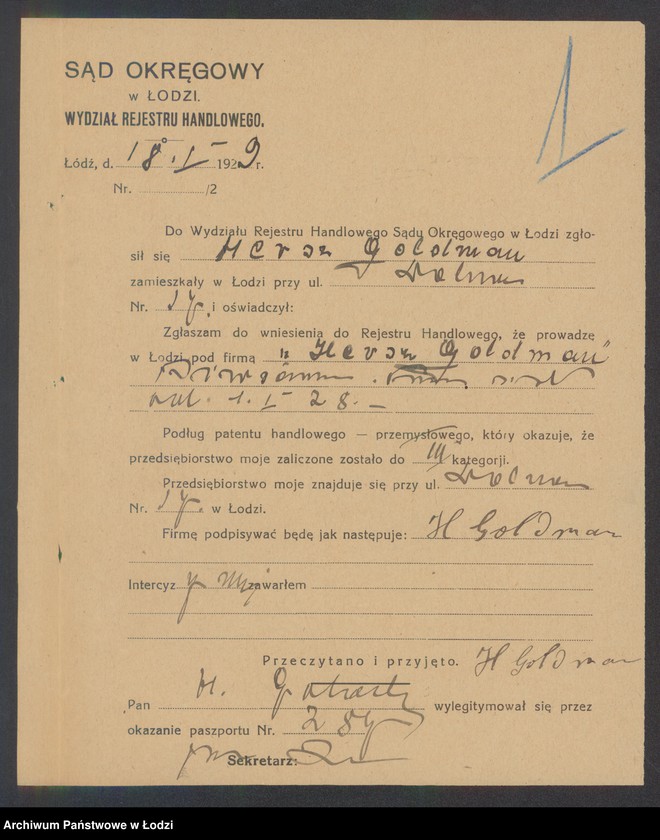 SĄD OKRĘGOWY
w ŁODZI.
WYDZIAŁ REJESTRU HANDLOWEGO.
Łódź, d. 18. I 1929 r.
Nr. /2
Do Wydziału Rejestru Handlowego Sądu Okręgowego w Łodzi zgło-
sił się Hersz Goldman
zamieszkały w Łodzi przy ul.
Nr. i oświadczył:
Zgłaszam do wniesienia do Rejestru Handlowego, że prowadzę
w Łodzi pod firmą "Hersz Goldman"
1. I 28. –
Podług patentu handlowego — przemysłowego, który okazuje, że
przedsiębiorstwo moje zaliczone zostało do III kategorji.
Przedsiębiorstwo moje znajduje się przy ul.
Nr. w Łodzi.
Firmę podpisywać będę jak następuje: H Goldman
Intercyz zawarłem
Przeczytano i przyjęto. H Goldman
Pan H. wylegitymował się przez
okazanie paszportu Nr.
Sekretarz:
Archiwum Państwowe w Łodzi